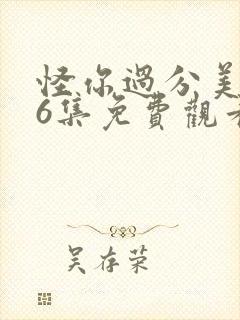 怪你過分美
6集免費觀看
吴存荣